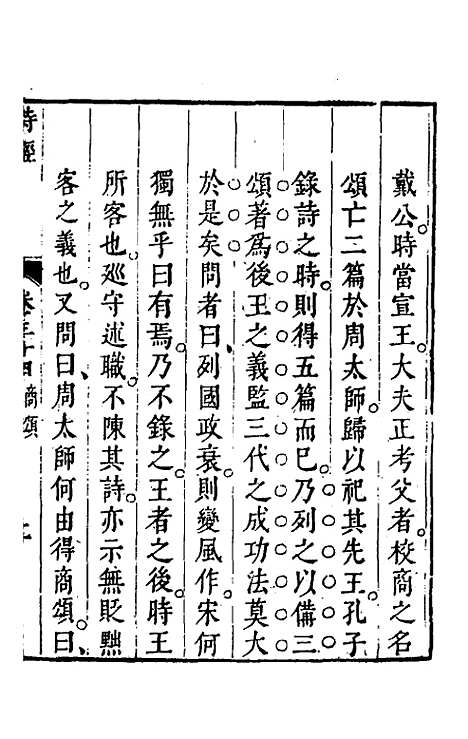 戴公。時當宣王。大夫正考父者。校商之名
頌亡二篇於周太師。歸以祀其先王。孔子
錄詩之時。則得五篇而已。乃列之以備三
頌。著爲後王之義。監三代之成功。法莫大
於是矣。問者曰、列國政衰。則變風作。宋何
獨無乎。曰有焉。乃不錄之。王者之後。時王
所客也。廵守述職。不陳其詩。亦示無貶黜
客之義也。又問曰、周太師何由得商頌。曰、
詩經
卷三十四商頌